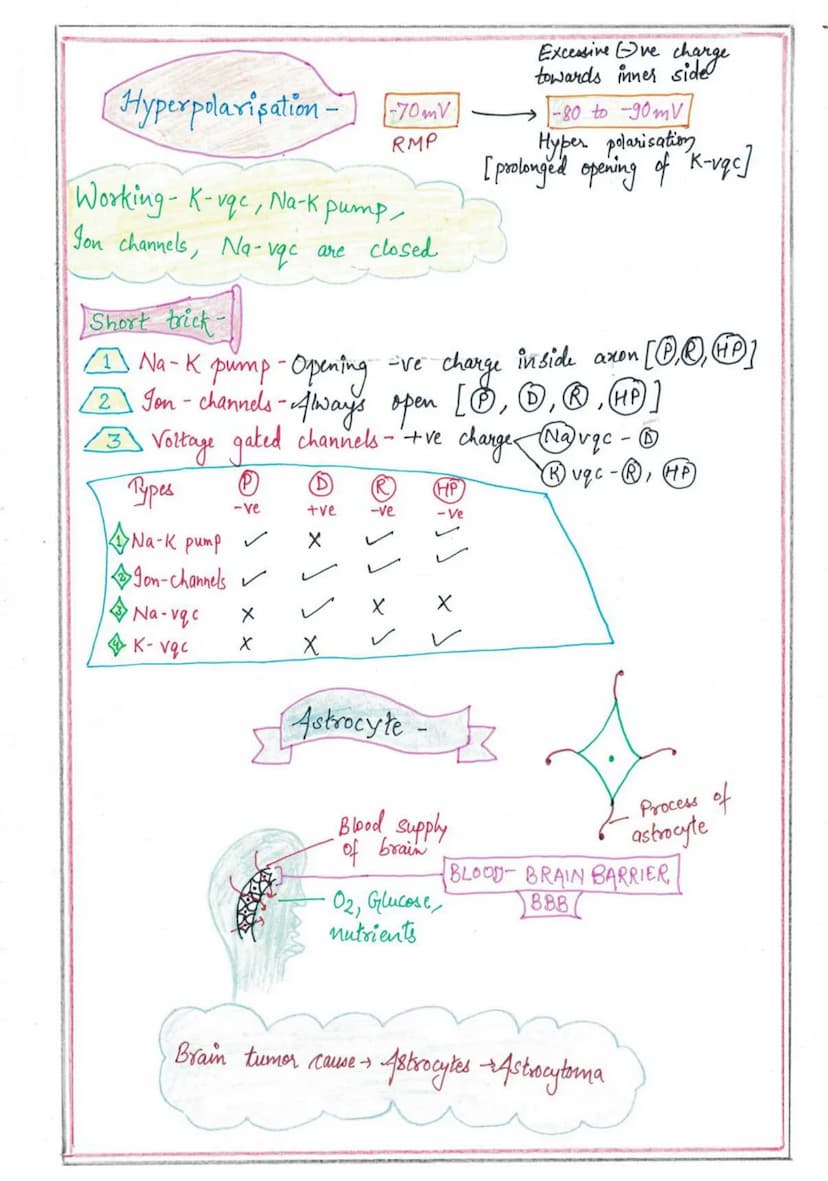 Excessive (-)ve charge
towards inner side
Hyperpolarisation -
-70mV → -80 to -90mV
RMP
Hyper polarisation
[prolonged opening of K-vqc]
Working - K-vqc, Na-K pump,
Ion channels, Na-vqc are closed
Short trick -
1 Na-K pump - Opening -ve charge inside axon [P, R, HP]
2 Ion-channels - Always open [P, D, R, HP]
3 Voltage gated channels - +ve charge < Na vqc - D
K vqc - R, HP
Types P D R HP
-ve +ve -ve -ve
1 Na-K pump ✓ x ✓ ✓
2 Ion-channels ✓ ✓ ✓ ✓
3 Na-vqc x ✓ x x
4 K-vqc x x ✓ ✓
Astrocyte -
Process of
astrocyte
Blood supply
of brain
BLOOD-BRAIN BARRIER
BBB
O2, Glucose,
nutrients
Brain tumor cause → Astrocytes → Astrocytoma